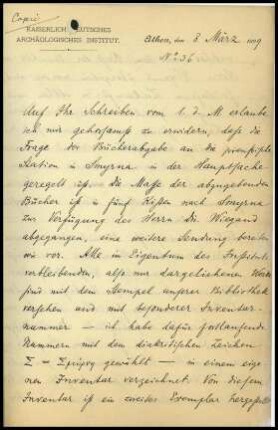 Copie
KAISERLICH DEUTSCHES
ARCHÄOLOGISCHES INSTITUT.
Athen, den 8 März 1899
No 36
Auf Ihr Schreiben vom 1. d. M. erlaube
ich mir gehorsamst zu erwidern, daß die
Frage der Bücherabgabe an die preußische
Station in Smyrna in der Hauptsache
geregelt ist. Die Masse der abzugebenden
Bücher ist in fünf Kisten nach Smyrna
zur Verfügung des Herrn Dr. Wiegand
abgegangen, eine weitere Sendung bereiten
wir vor. Alle in Eigentum des Instituts
verbleibenden, also nur dargeliehenen Werke
sind mit dem Stempel unsrer Bibliothek
versehen und mit besonderer Inventar-
nummer — ich habe dafür fortlaufende
Nummern mit dem diakritischen Zeichen
Σ = Σμύρνη gewählt — in einem eige
nen Inventar verzeichnet. Von diesem
Inventar ist ein zweites Exemplar hergestellt